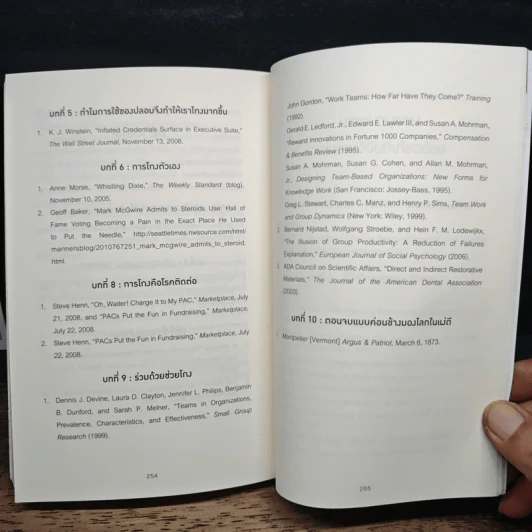 บทที่ 5 : ทำไมการใช้ของปลอมจึงทำให้เราโกงมากขึ้น
1. K. J. Winstein, "Inflated Credentials Surface in Executive Suite,"
The Wall Street Journal, November 13, 2008.
บทที่ 6 : การโกงตัวเอง
1. Anne Morse, "Whistling Dixie," The Weekly Standard (blog),
November 10, 2005.
2. Geoff Baker, "Mark McGwire Admits to Steroids Use: Hall of
Fame Voting Becoming a Pain in the Exact Place He Used
to Put the Needle," http://seattletimes.nwsource.com/html/
marinersblog/2010767251_mark_mcgwire_admits_to_steroid.
html.
บทที่ 8 : การโกงคือโรคติดต่อ
1. Steve Henn, "Oh, Waiter! Charge It to My PAC," Marketplace, July
21, 2008, and "PACs Put the Fun in Fundraising," Marketplace,
July 22, 2008.
2. Steve Henn, "PACs Put the Fun in Fundraising," Marketplace, July
22, 2008.
บทที่ 9 : ร่วมด้วยช่วยโกง
1. Dennis J. Devine, Laura D. Clayton, Jennifer L. Philips, Benjamin
B. Dunford, and Sarah P. Melner, "Teams in Organizations,
Prevalence, Characteristics, and Effectiveness," Small Group
Research (1999).
254
John Gordon, "Work Teams: How Far Have They Come?" Training
(1992).
Gerald E. Ledford, Jr., Edward E. Lawler III, and Susan A. Mohrman,
"Reward Innovations in Fortune 1000 Companies," Compensation
& Benefits Review (1995).
Susan A. Mohrman, Susan G. Cohen, and Allan M. Mohrman,
Jr., Designing Team-Based Organizations: New Forms for
Knowledge Work (San Francisco: Jossey-Bass, 1995).
Greg L. Stewart, Charles C. Manz, and Henry P. Sims, Team Work
and Group Dynamics (New York: Wiley, 1999).
2. Bernard Nijstad, Wolfgang Stroebe, and Hein F. M. Lodewijkx,
"The Illusion of Group Productivity: A Reduction of Failures
Explanation," European Journal of Social Psychology (2006).
3. ADA Council on Scientific Affairs, "Direct and Indirect Restorative
Materials," The Journal of the American Dental Association
(2003).
บทที่ 10 : ตอนจบแบบค่อนข้างมองโลกในแง่ดี
1. Montpelier [Vermont] Argus & Patriot, March 6, 1873.
255